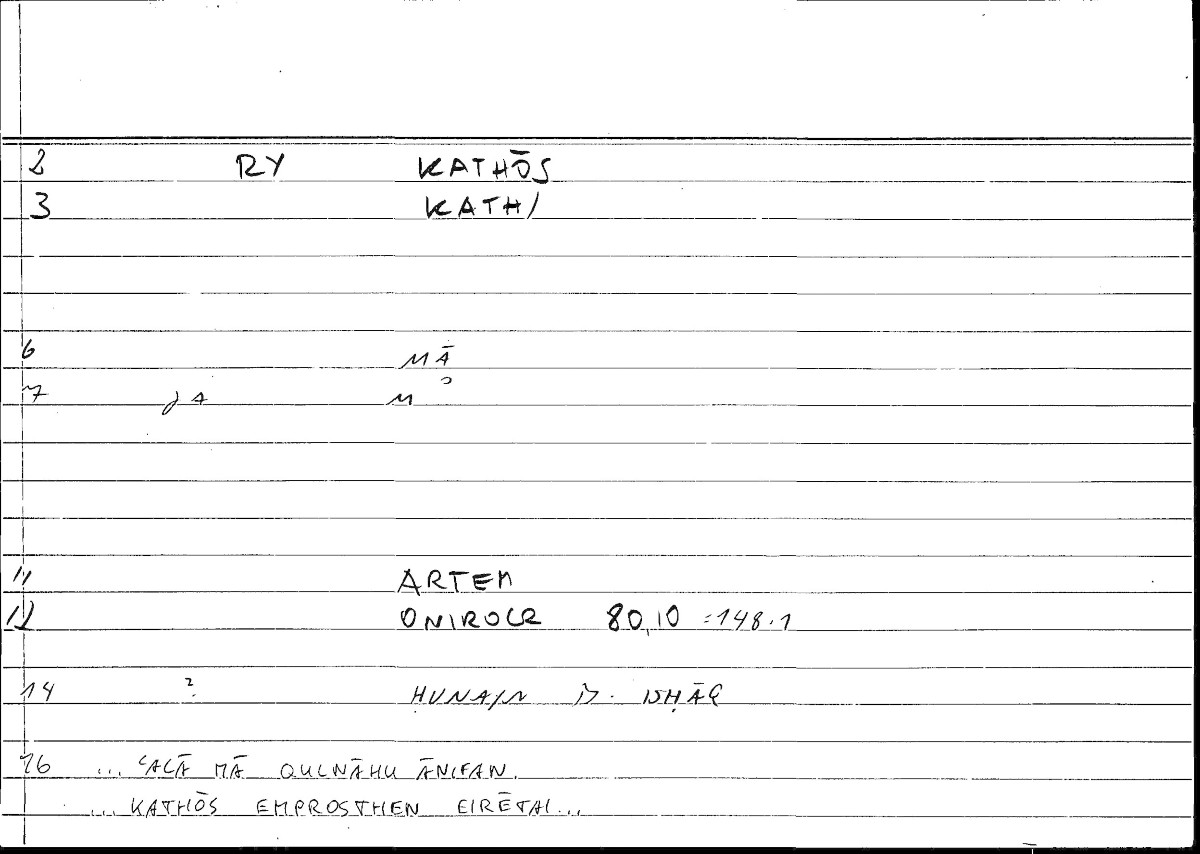 2 RY KATHŌS
3 KATH/
6 MĀ
7 JA M
11 ARTEM
12 ONIROCR 80,10 =148.1
14 ? ḤUNAJN B. ISḤĀQ
16 ... ʿALĀ MĀ QULNĀHU ĀNIFAN.
... KATHŌS EMPROSTHEN EIRĒTAI...